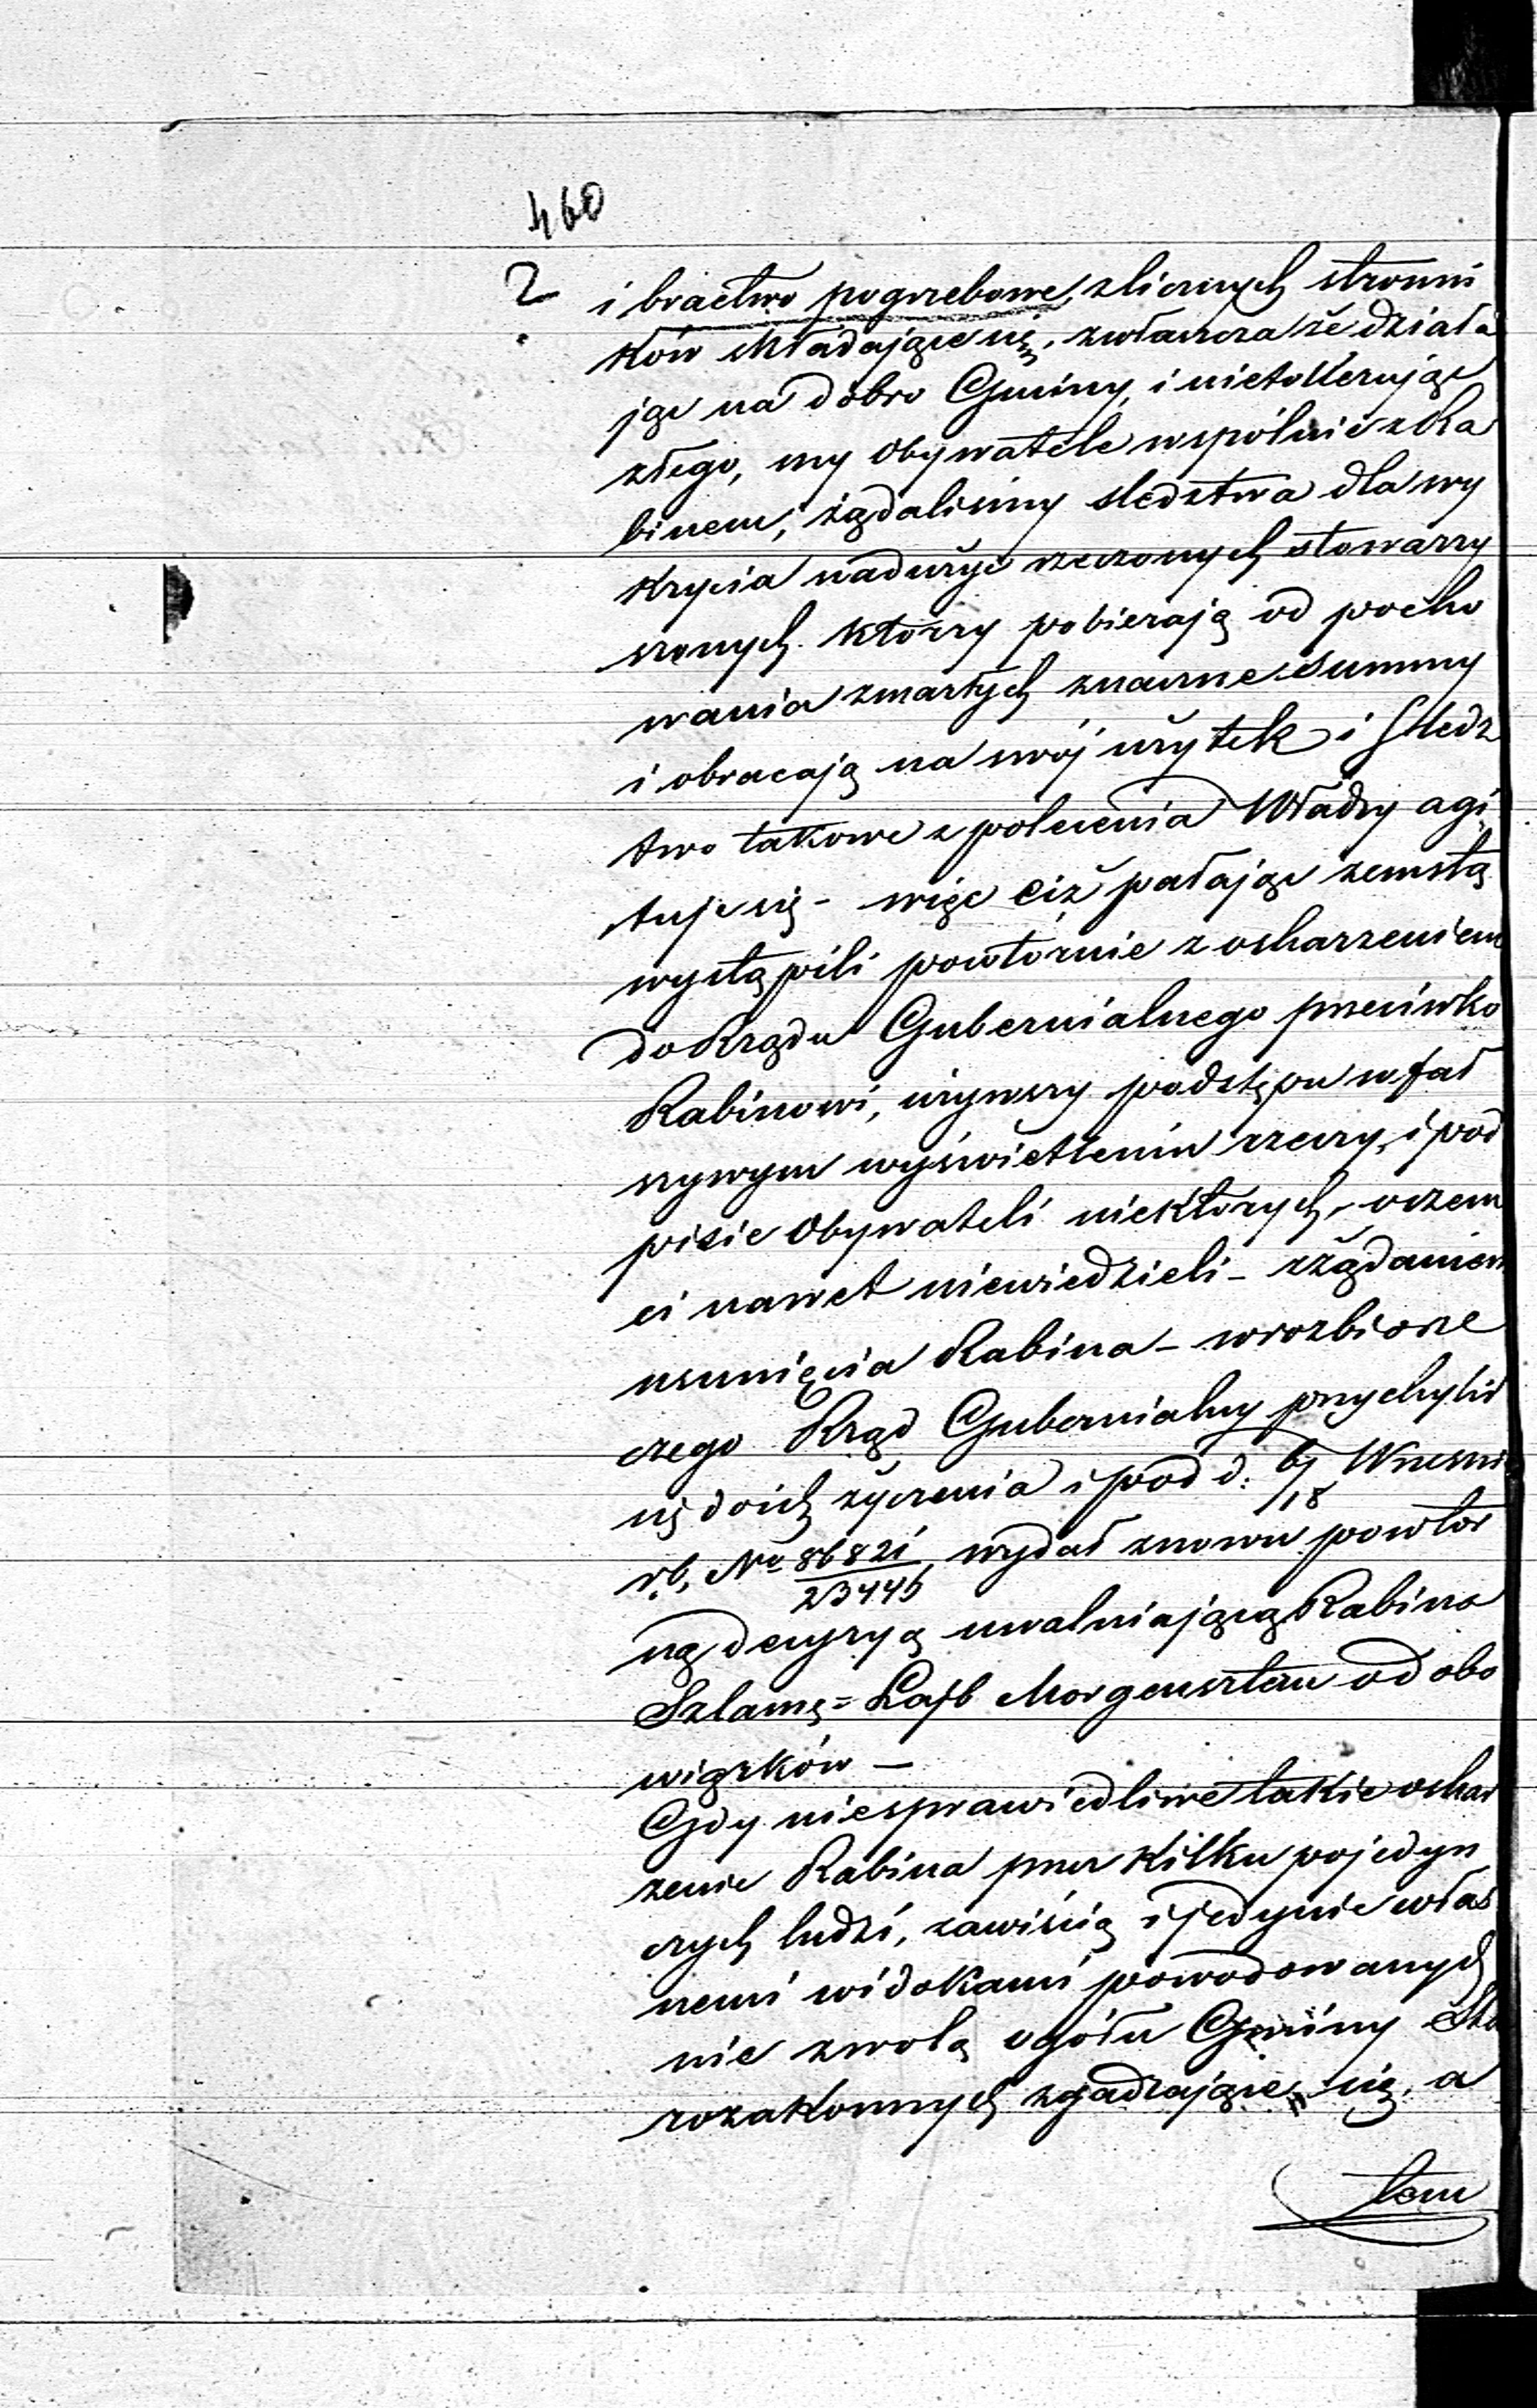 460
2
i bractwo pogrzebowe, zlicznych stronni
ków składające się, zwłaszcza że działa
jąc na dobro Gminy, i nietollerując
złego, my Obywatele wspólnie z Ra
binem, żądaliśmy sledztwa dla wy
krycia nadużyć rzeczonych stowarzy
szonych którzy pobierają od pocho
wania zmarłych znaczne Summy
i obracają na swój użytek i Sledz
two takowe z polecenia Władzy agi
tuje się - więc ciż pałając zemstą
wystąpili powtórnie z oskarzeniem
do Rządu Gubernialnego przeciwko
Rabinowi, używszy podstępu w fał
szywym wyświetleniu rzeczy, i pod
pisie Obywateli niektórych, oczem
ci nawet niewiedzieli - zżądaniem
usunięcia Rabina - wrozbiorze
czego Rząd Gubernialny przychylił
się doich życzenia i pod d. 6/18 Wrześni
r.b. No 86821/23445, wydał znowu powtór
ną decyzyą uwalniającą Rabina
Szlamę = Lajb Morgensztern od obo
wiązków —
Gdy niesprawiedliwe takie oskar
zenie Rabina przez kilku pojedyn
czych ludzi, zawiścią i jedynie właś
nemi widokami powodowanych
nie zwolą ogółu Gminy Sta
rozakonnych zgadzające się, a
tem